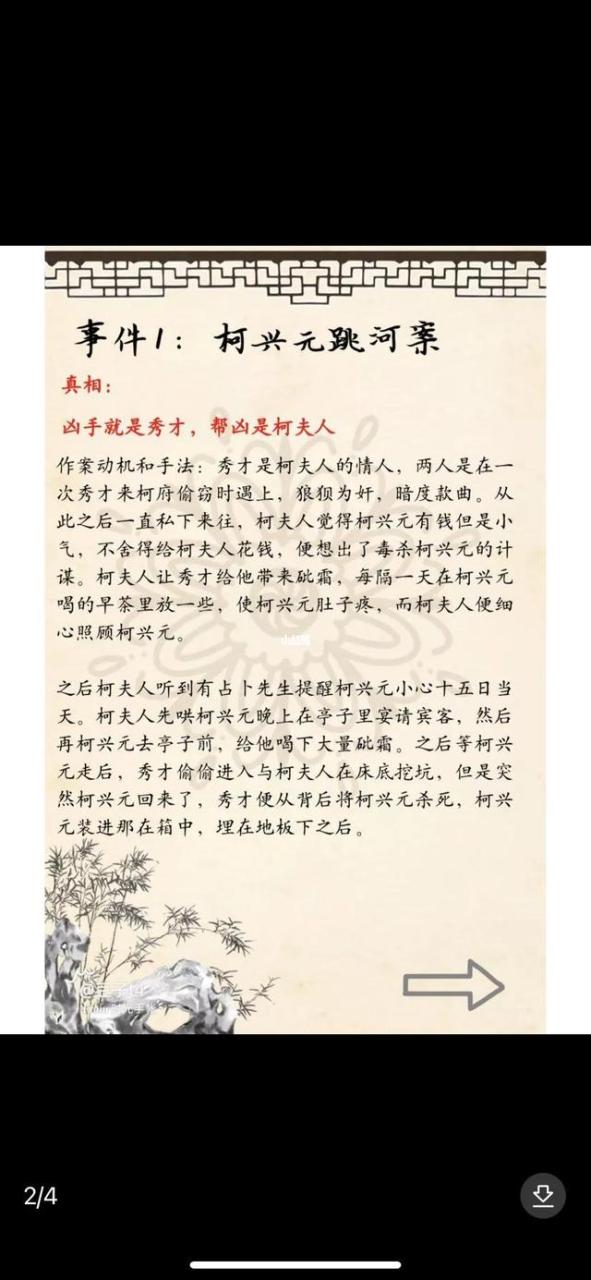 事件1：柯兴元跳河案
真相：
凶手就是秀才，帮凶是柯夫人
作案动机和手法：秀才是柯夫人的情人，两人是在一
次秀才来柯府偷窃时遇上，狼狈为奸，暗度款曲。从
此之后一直私下来往，柯夫人觉得柯兴元有钱但是小
气，不舍得给柯夫人花钱，便想出了毒杀柯兴元的计
谋。柯夫人让秀才给他带来砒霜，每隔一天在柯兴元
喝的早茶里放一些，使柯兴元肚子疼，而柯夫人便细
心照顾柯兴元。
之后柯夫人听到有占卜先生提醒柯兴元小心十五日当
天。柯夫人先哄柯兴元晚上在亭子里宴请宾客，然后
再柯兴元去亭子前，给他喝下大量砒霜。之后等柯兴
元走后，秀才偷偷进入与柯夫人在床底挖坑，但是突
然柯兴元回来了，秀才便从背后将柯兴元杀死，柯兴
元装进那在箱中，埋在地板下之后。
2/4